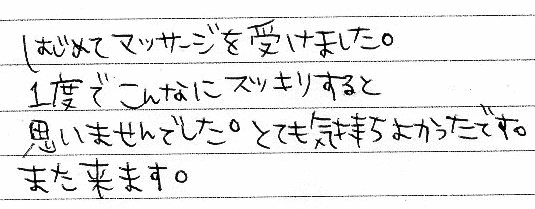 はじめてマッサージを受けました。
1度でこんなにスッキリすると
思いませんでした。とても気持ちよかったです。
また来ます。